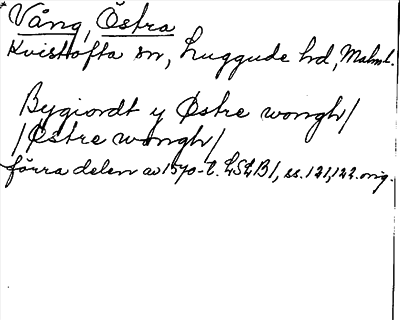 Vång, Östra
Kvistofta sn, Luggude hd, Malm.l.
Bygiordt y Østre wongh/
/Østre wongh/
förra delen av 1570-t. LSLB1, ss. 121, 122. orig.